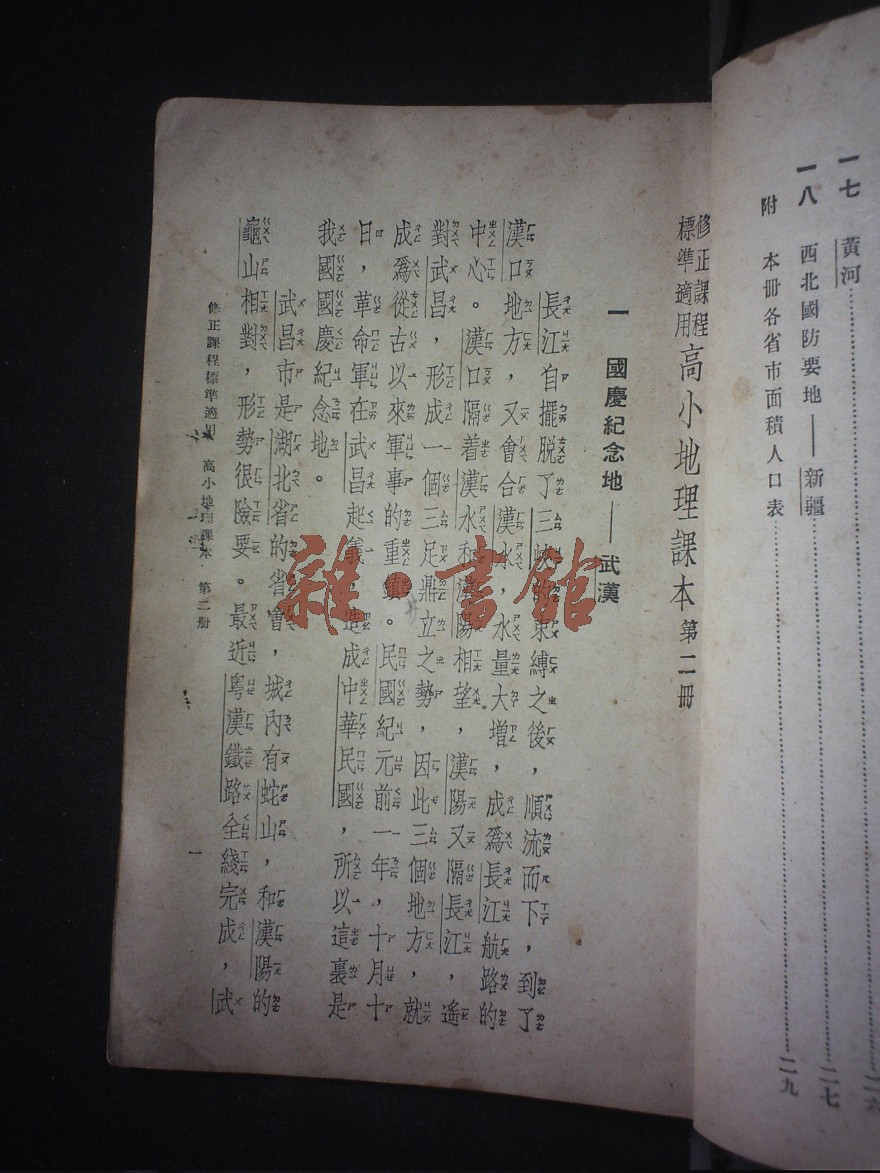 一七 黃河……………………二六
一八 西北國防要地——新疆……………………二七
附 本册各省市面積人口表……………………二九
修正課程標準適用 高小地理課本 第二册
一 國慶紀念地——武漢
長江自擺脫了三峽的束縛之後，順流而下，到了
漢口地方，又會合漢水，水量大增，成爲長江航路的
中心。漢口隔着漢水和漢陽相望，漢陽又隔長江，遙
對武昌，形成一個三足鼎立之勢，因此三個地方，就
成爲從古以來軍事的重鎮。民國紀元前一年，十月十
日，革命軍在武昌起義，造成中華民國，所以這裏是
我國國慶紀念地。
武昌市是湖北省的省會，城內有蛇山，和漢陽的
龜山相對，形勢很險要。最近粵漢鐵路全綫完成，武
修正課程標準適用 高小地理課本 第二册
一
雜·書館